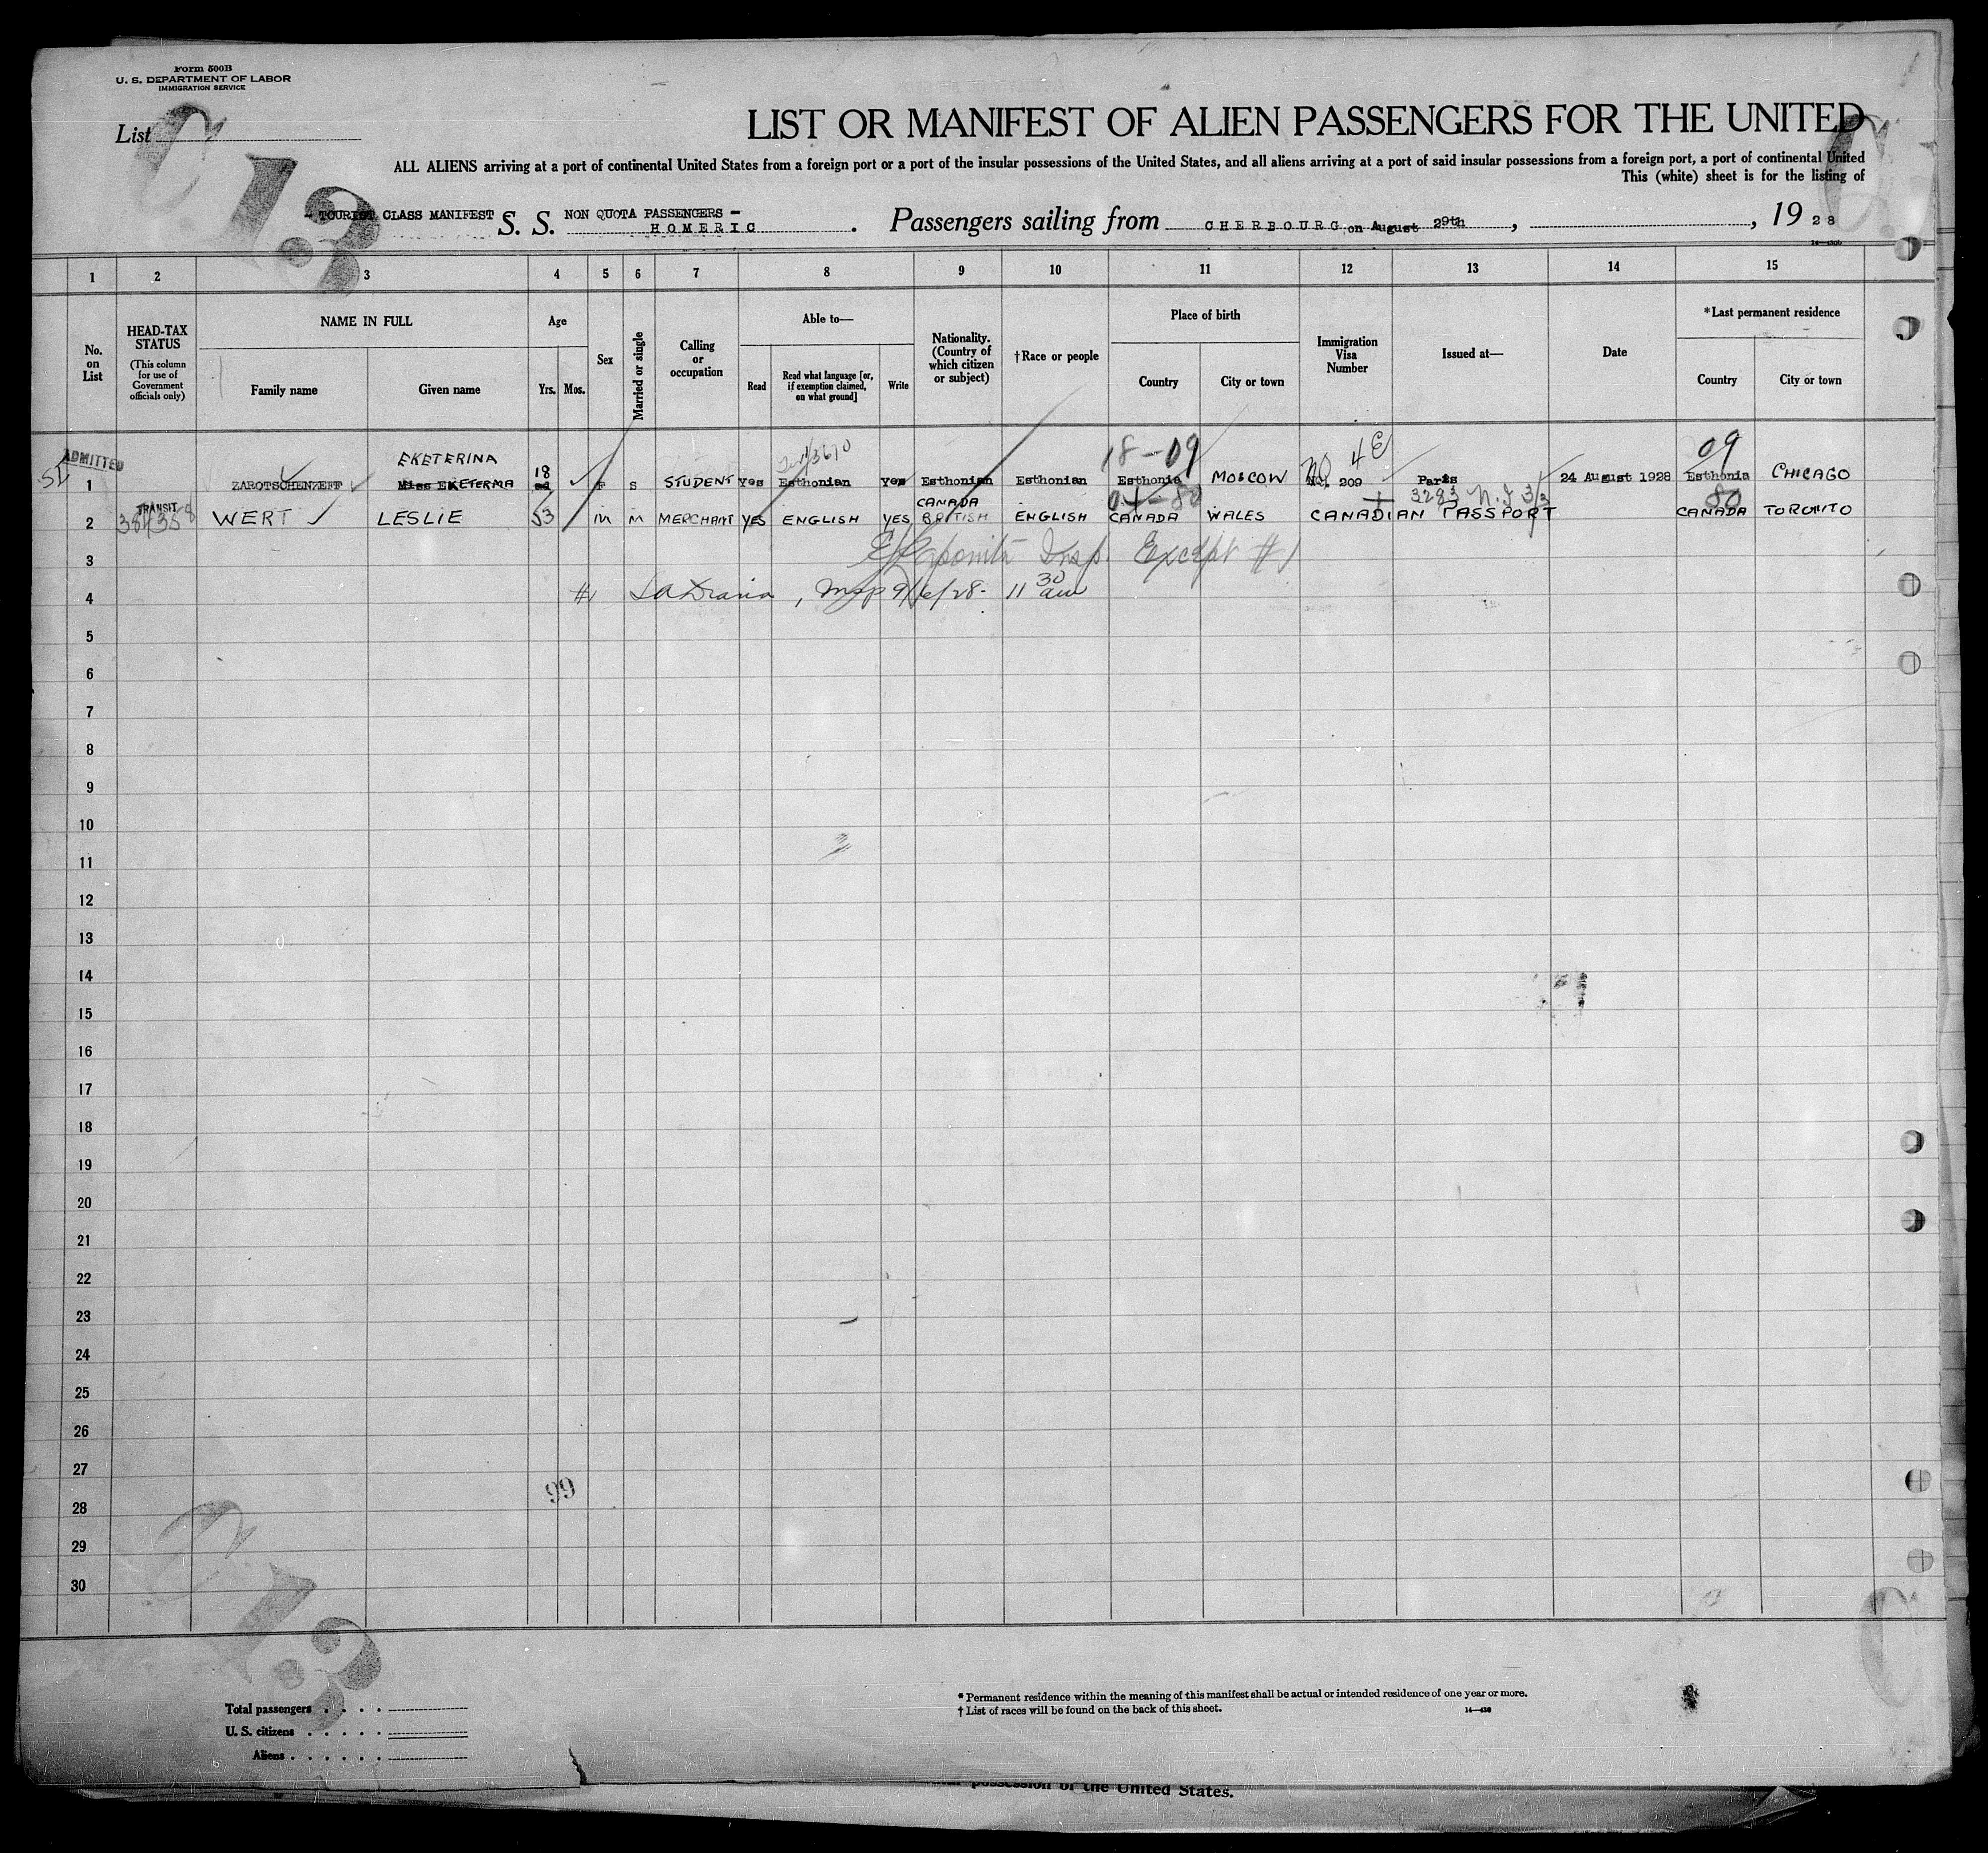 Form 500B
U. S. DEPARTMENT OF LABOR
IMMIGRATION SERVICE
List
13
LIST OR MANIFEST OF ALIEN PASSENGERS FOR THE UNITED
ALL ALIENS arriving at a port of continental United States from a foreign port or a port of the insular possessions of the United States, and all aliens arriving at a port of said insular possessions from a foreign port, a port of continental United
This (white) sheet is for the listing of
- TOURIST CLASS MANIFEST S. S. NON QUOTA PASSENGERS -
HOMERIC . Passengers sailing from CHERBOURG on August 29th , , 19 28
1 2 3 4 5 6 7 8 9 10 11 12 13 14 15
No. on List
HEAD-TAX STATUS
(This column for use of Government officials only)
NAME IN FULL
Family name Given name
Age
Yrs. Mos.
Sex
Married or single
Calling or occupation
Able to—
Read
Read what language [or, if exemption claimed, on what ground]
Write
Nationality. (Country of which citizen or subject)
†Race or people
Place of birth
Country City or town
Immigration Visa Number
Issued at—
Date
*Last permanent residence
Country City or town
ADMITTED EKETERINA 18 18-09 4E 09
1 ZAROTSCHENZEFF Miss EKETERMA F S STUDENT Yes Esthonian Yes Esthonian Esthonian Esthonia MOSCOW No. 209 Paris 24 August 1928 Esthonia CHICAGO
TRANSIT CANADA 80 3283 80
2 WERT LESLIE 53 M M MERCHANT YES ENGLISH YES BRITISH ENGLISH CANADA WALES CANADIAN PASSPORT CANADA TORONTO
3 Insp. Except #1
4 #1 9/6/28 - 11 30 am
5
6
7
8
9
10
11
12
13
14
15
16
17
18
19
20
21
22
23
24
25
26
27
99
28
29
30
13
Total passengers
U. S. citizens
Aliens
* Permanent residence within the meaning of this manifest shall be actual or intended residence of one year or more.
† List of races will be found on the back of this sheet.
possession of the United States.